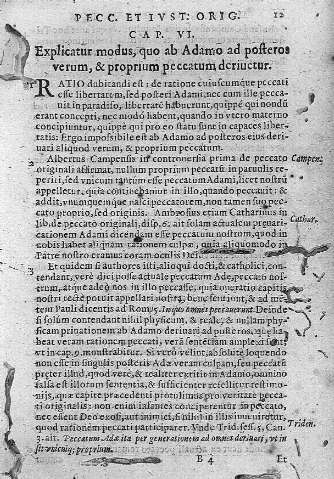 PECC. ET IVST. ORIG. 12
CAP. VI.
Explicatur modus, quo ab Adamo ad posteros
verum, & proprium peccatum deriuetur.
RATIO dubitandi est: de ratione cuiuscumque peccati
esse libertatem, sed posteri Adami, nec cum ille pecca-
uit in paradiso, libertatẽ habuerunt, quippe qui nondũ
erant concepti, nec modò habent, quando in vtero materno
concipiuntur, quippe qui pro eo statu sunt in capaces liber-
tatis: Ergo impossibile est ab Adamo ad posteros eius deri-
uari aliquod verum, & proprium peccatum.
2 Albertus Campensis in controuersia prima de peccato Campen.
originali affirmat, nullum proprium peccatũ in paruulis re-
periri, sed vnicum tantum esse peccatum Adami, licet nostrũ
appelletur, quia continebamur in illo, quando peccauit: &
addit, vnumquemque nasci peccatorem, non tamen suo pec-
cato proprio, sed originis. Ambrosius etiam Catharinus in Cathar.
lib. de peccato originali, disp. 6. ait solam actualem præuari-
cationem Adami dicendam esse peccatum nostrum, quod in
nobis habet aliquam rationem culpæ, quia aliquomodo in
Patre nostro eramus coram oculis Dei.
3 Et quidem si authores isti, alioqui docti, & catholici, con-
tendant, verè dici posse actuale peccatum Adæ, peccatũ no-
strum, atque adeò nos in illo peccasse, quia quatenus capitis
nostri rectè potuit appellari nostra, benè sentiunt, & ad mẽ-
tem Pauli dicentis ad Rom. 5. In quo omnes peccauerunt. Deinde
si solum contendant nihil physicum, & reale, & nullam phy-
sicam priuationem ab Adamo deriuari ad posteros, quæ ha-
beat veram rationem peccati, verã sententiam amplexi sunt,
vt in cap. 9. monstrabitur. Si verò velint, absolutè loquendo
non esse in singulis posteris Adæ veram culpam, seu peccatũ
præter illud, quod verè, & realiter extitit in Adamo, omnino
falsa est illorum sententia, & sufficienter reiicitur testimo-
nijs, quæ capite præcedenti protulimus pro veritate pecca-
ti originalis: non enim infantes conciperentur in peccato,
nec essent Deo exosi, aut inimici, si nihil in illis suum viretur,
quod rationem peccati participaret. Vnde Trid. sess. 5. Can. Triden.
3. ait. Peccatum Adæ ita per generationem ad omnes deriuari, vt in-
sit vnicuique proprium.
B 4 Et